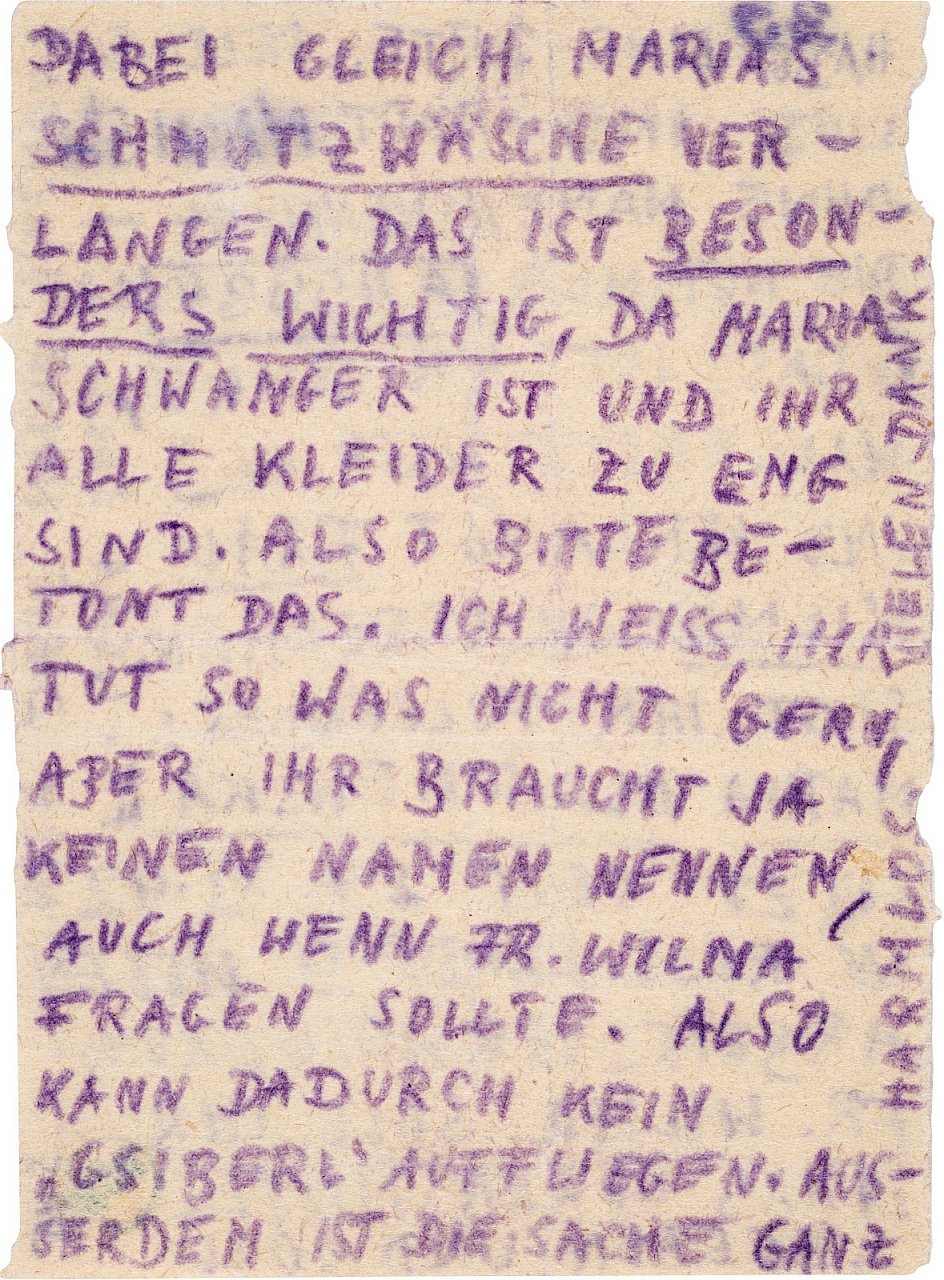 DABEI GLEICH MARIAS
SCHMUTZWÄSCHE VER-
LANGEN. DAS IST BESON-
DERS WICHTIG, DA MARIA
SCHWANGER IST UND IHR
ALLE KLEIDER ZU ENG
SIND. ALSO BITTE BE-
TONT DAS. ICH WEISS, IHR
TUT SO WAS NICHT GERN,
ABER IHR BRAUCHT JA
KEINEN NAMEN NENNEN,
AUCH WENN FR. WILMA
FRAGEN SOLLTE. ALSO
KANN DADURCH KEIN
„GSIBERL' AUFFLIEGEN. AUS-
SERDEM IST DIE SACHE GANZ
HARMLOS, VIELEN DANK.